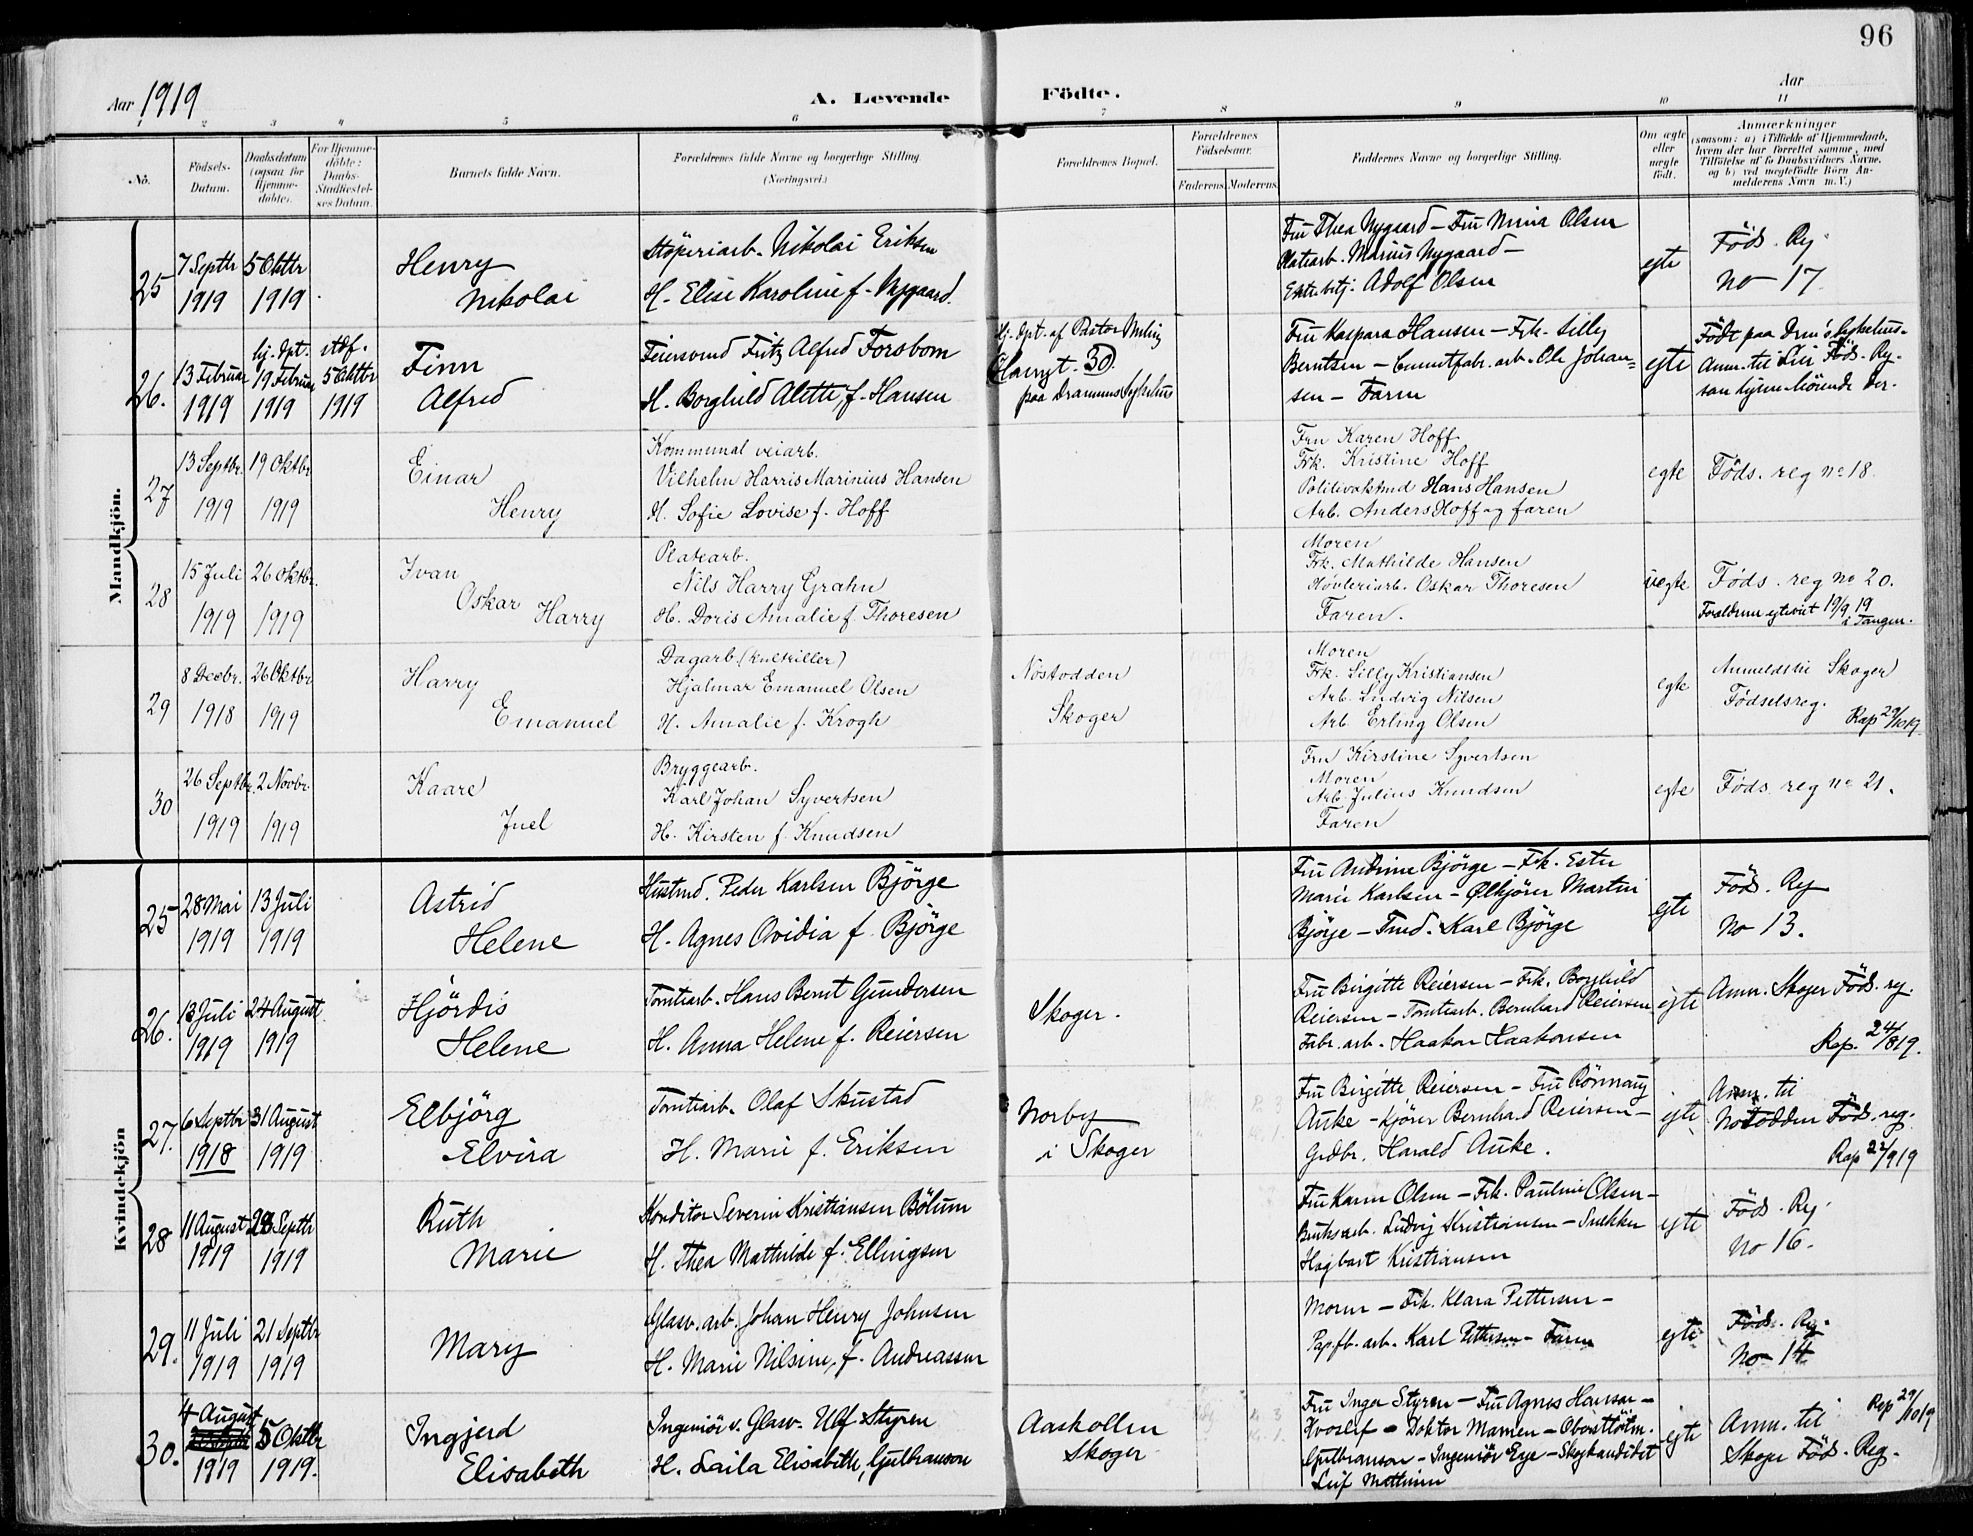 96
Aar 1919
A. Levende Födte.
Aar
1 2 3 4 5 6 7 8 9 10 11
No.
Födsels-Datum.
Daabsdatum (ogsaa for Hjemme-döbte).
For Hjemme-döbte: Daabs-Stadfæstel-ses Datum.
Barnets fulde Navn.
Forældrenes fulde Navne og borgerlige Stilling. (Næringsvei.)
Forældrenes Bopæl.
Forældrenes Födselsaar.
Faderens. Moderens.
Faddernes Navne og borgerlige Stilling.
Om ægte eller uægte födt.
Anmærkninger
(saasom: a) i Tilfælde af Hjemmedaab, hvem der har forrettet samme, med Tilföielse af to Daabsvidners Navne, og b) ved uægtefödte Börn Anmelderens Navn m. V.)
Mandkjön.
25 7 Septbr 1919 5 Oktbr 1919
Henry
Nikolai
Støperiarb. Nikolai Eriksen
H. Elise Karoline f. Nygaard.
Fru Thea Nygaard – Fru Mina Olsen
Platearb. Marius Nygaard –
Adolf Olsen
egte
Föds. Reg.
No 17
26. 13 Februar 1919 hj. dpt. 19 Februar 1919 stdf. 5 Oktbr 1919
Finn
Alfred
Feiersvend Fritz Alfred Forsbom
H. Borghild Alette, f. Hansen
Hj. dpt. af Pastor
30.
paa Drammens Sykehus
Fru Kaspara Hansen – Frk. Lilly
Berntsen – Cementfabr. arb. Ole Johan=
sen – Faren
egte
Født paa Drm's Sykehus.
Anm. til Föds. Reg.
27 13 Septbr. 1919 19 Oktbr. 1919
Einar
Henry
Kommunal veiarb.
Vilhelm Harris Marinius Hansen
H. Sofie Lovise f. Hoff
Fru Karen Hoff
Frk. Kristine Hoff
Hans Hansen
Arb. Anders Hoff og faren
egte
Föds. reg no 18.
28 15 Juli 1919 26 Oktbr. 1919
Ivan
Oskar Harry
Platearb.
Nils Harry Grahn
H. Doris Amalie f. Thoresen
Moren
Frk. Mathilde Hansen
Høvleriarb. Oskar Thoresen
Faren.
uegte
Föds. reg no 20.
Forældrene egteviet 19/9 19
i Tangen.
29 8 Decbr. 1918 26 Oktbr 1919
Harry
Emanuel
Dagarb.
Hjalmar Emanuel Olsen
H. Amalie f. Krogh
Nøstodden
Skoger
Moren
Frk. Lilly Kristiansen
Arb. Ludvig Nilsen
Arb. Erling Olsen
egte
Anmeldt til Skoger
Fødselsreg.
Rap 29/10 19.
30 26 Septbr. 1919 2 Novbr. 1919
Kaare
Juel
Bryggearb.
Karl Johan Syvertsen
H. Kirsten f. Knudsen
Fru Kirstine Syvertsen
Moren
Arb. Julius Knudsen
Faren
egte
Föds. reg no 21.
Kvindekjön
25 28 Mai 1919 13 Juli 1919
Astrid
Helene
Peder Karlsen Björge
H. Agnes Ovidia f. Björge
Fru Andrine Björge – Frk. Ester
Marie Karlsen – Ølkjører Martin
Björge – Karl Björge
egte
Föds. Reg
No 13.
26. 13 Juli 1919 24 August 1919
Hjördis
Helene
Tomtearb. Hans Bernt Gundersen
H. Anna Helene f. Reiersen
Skoger.
Fru Birgitte Reiersen – Frk. Borghild
Reiersen – Tomtearb. Bernhard Reiersen
Fabr. arb. Haakon Haakonsen
egte
Anm. Skoger Föds. reg.
Rap. 24/8 19.
27. 6 Septbr 1918 31 August 1919
Elbjörg
Elvira
Tomtearb. Olaf Skustad
H. Marie f. Eriksen
Norby
i Skoger
Fru Birgitte Reiersen – Fru Rönnaug
Auke – Kjörer Bernhard Reiersen –
Grdbr. Harald Auke.
egte
Anm. til
Nøstodden Föds. reg.
Rap 22/9 19
28 11 August 1919 28 Septbr 1919
Ruth
Marie
Konditor Severin Kristiansen Bölum
H. Thea Mathilde f. Ellingsen
Fru Karen Olsen – Frk. Pauline Olsen –
Bruksarb. Ludvig Kristiansen – Snekker
Hagbart Kristiansen
egte
Föds. Reg.
No 16.
29. 11 Juli 1919 21 Septbr 1919
Mary
Glasv. arb. Johan Henry Johnsen
H. Marie Nilsine, f. Andreassen
Moren – Frk. Klara Pettersen –
Pap.fb. arb. Karl Pettersen – Faren
egte
Föds. Reg.
No 14
30. 4 August 1919 5 Oktbr 1919.
Ingjerd
Elisabeth
Ingeniör v. Glasv. Ulf Styren
H. Laila Elisabeth, Gulbranson
Aaskollen
Skoger
Fru Inger Styren – Fru Agnes Hanson –
Hvoslef – Doktor Mamen – Oberstløitn.
Gulbranson – Ingeniör Ege – Skogkandidat
Leif
egte
Anm. til
Skoger Föd. Reg.
Rap 29/10 19